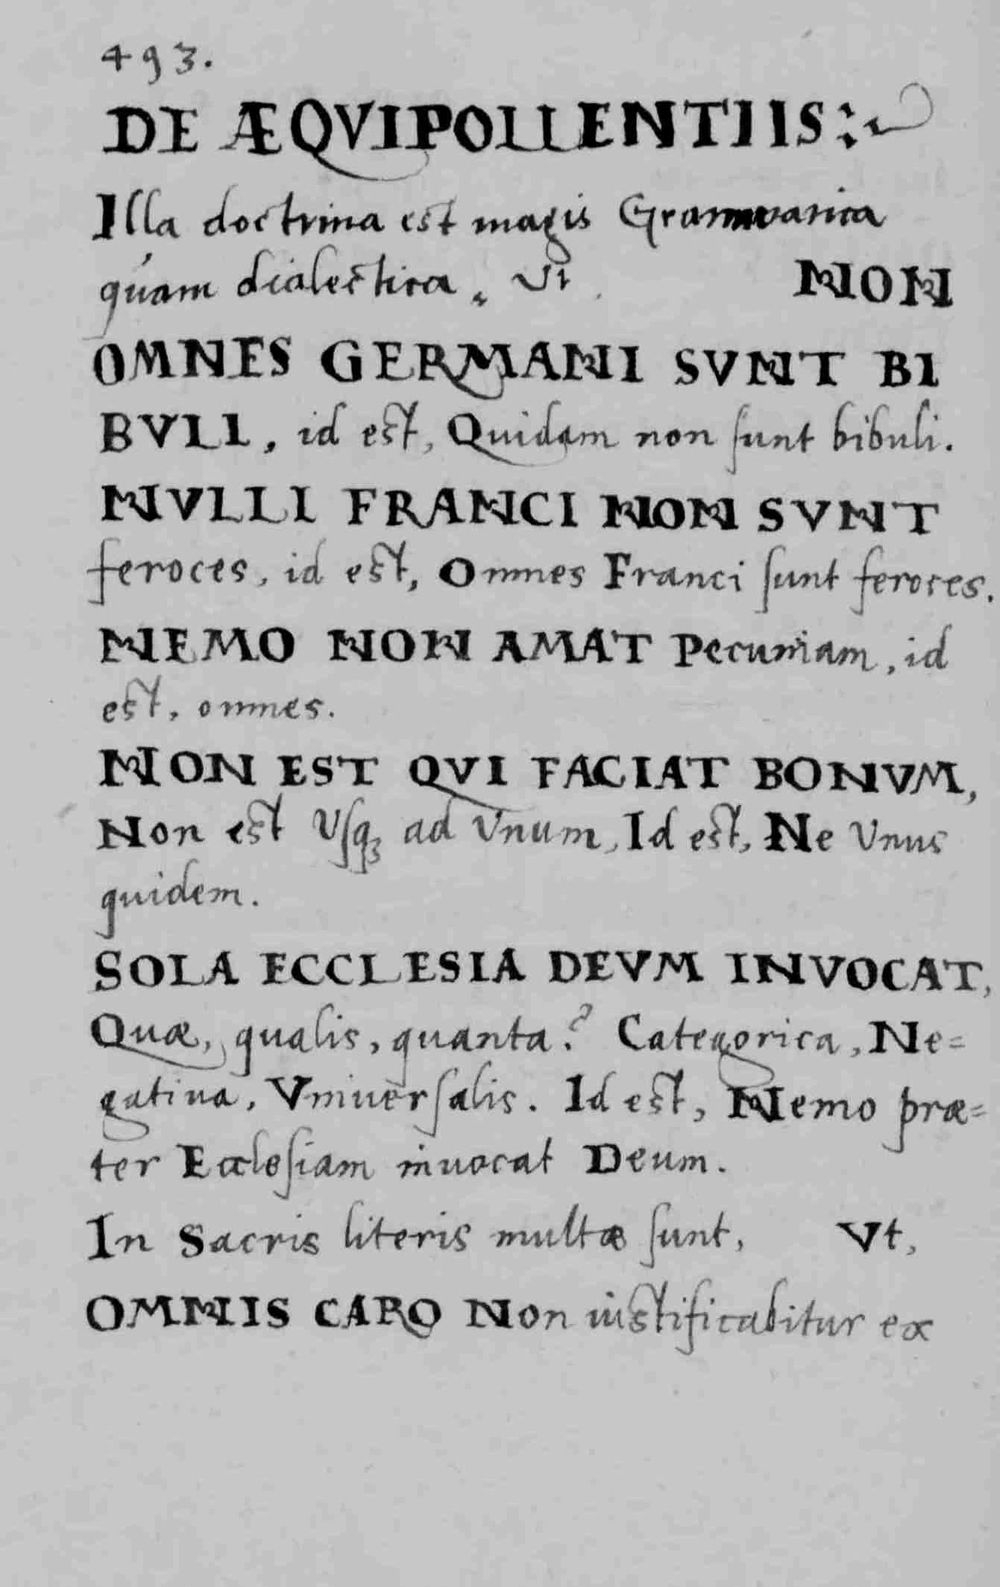 493.
DE ÆQVIPOLLENTIIS:
Illa doctrina est magis Grammatica
quàm dialectica. Vt NON
OMNES GERMANI SVNT BI
BVLI, id est, Quidam non sunt bibuli.
NVLLI FRANCI NON SVNT
feroces, id est, Omnes Franci sunt feroces.
NEMO NON AMAT Pecuniam, id
est, omnes.
NON EST QVI FACIAT BONVM,
Non est Vsq₃ ad Vnum, Id est, Ne Vnus
quidem.
SOLA ECCLESIA DEVM INVOCAT,
Quæ, qualis, quanta? Categorica, Ne=
gatiua, Vniuersalis. Id est, Nemo præ=
ter Ecclesiam inuocat Deum.
In Sacris literis multæ sunt, Vt,
OMNIS CARO Non iustificabitur ex